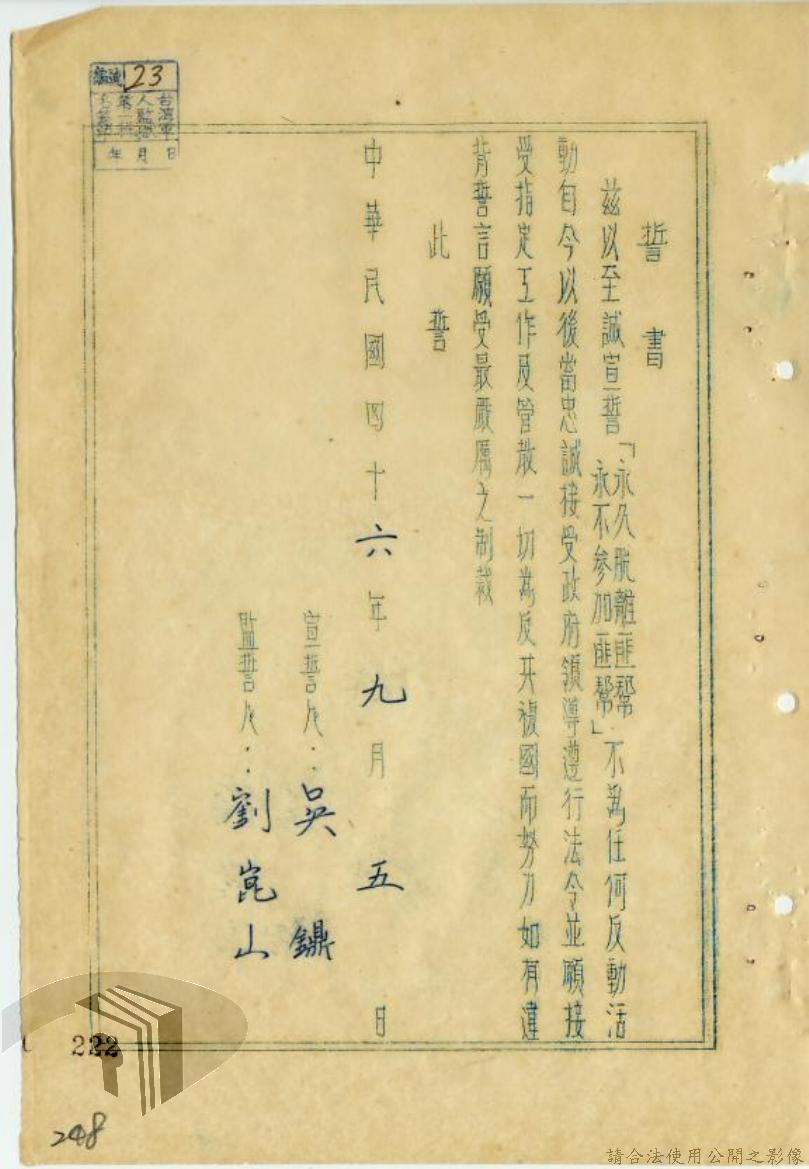 誓書
茲以至誠宣誓「永久脫離匪幫
永不參加匪幫」不為任何反動活
動自今以後當忠誠接受政府領導遵行法令並願接
受指定工作及管教一切為反共復國而努力如有違
背誓言願受最嚴厲之制裁
此誓
中華民國四十六年九月五日
宣誓人：吳鏞
監誓人：劉崑山
23
年月日
222
248
請合法使用公開之影像